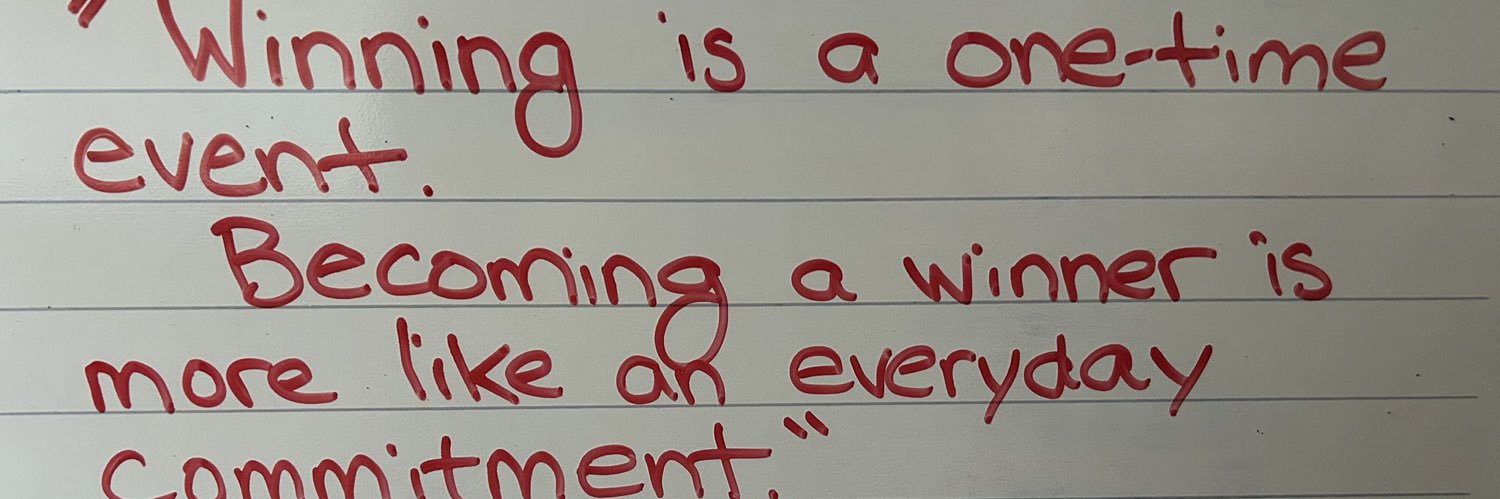 "Winning is a one-time
event.
Becoming a winner is
more like an everyday
commitment."